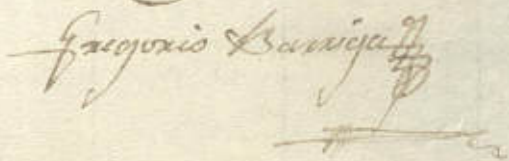 Gregorio Barriga